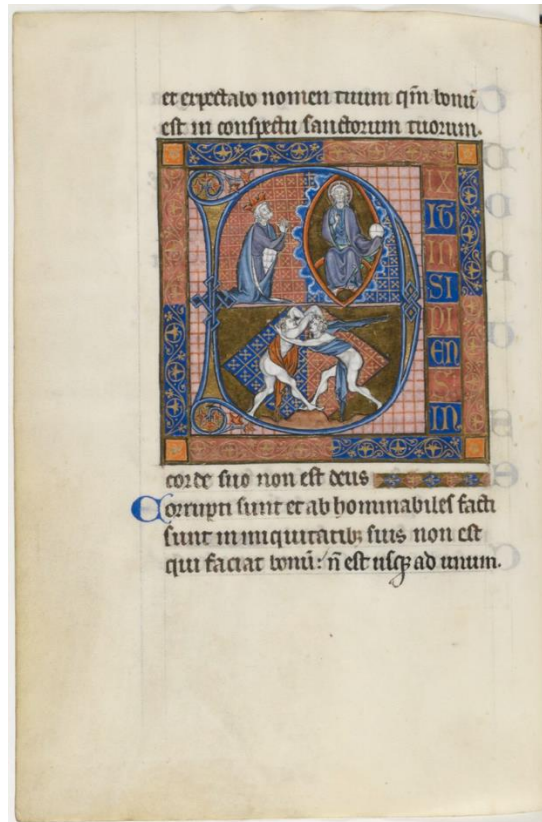 et expectabo nomen tuum qm̄ bonū
est in conspectu sanctorum tuorum.
D
IX
IT
IN
SI
PI
EN
S
IN
corde suo non est deus
Corrupti sunt et abhominabiles facti
sunt in iniquitatib; suis non est
qui faciat bonū: n̄ est usq; ad unum.